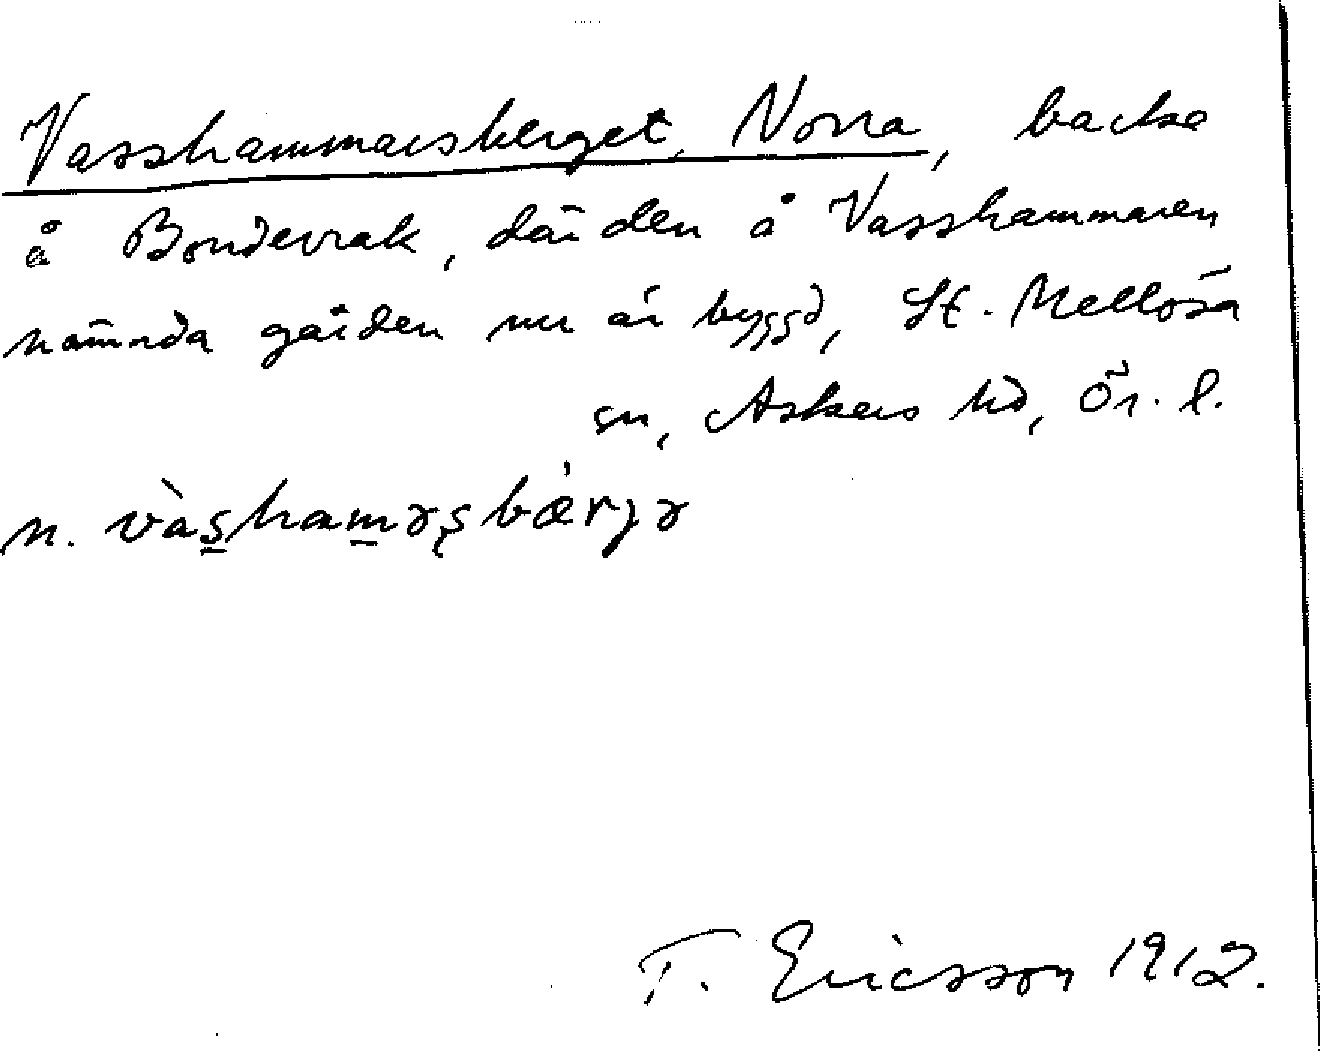 Vasshammarsberget, Norra, backe
å Bondevrak, där den å Vasshammaren
nämnda gården nu är byggd, St. Mellösa
sn, Askers hd, Ör. l.
n. vàs̲ham̲ərşbæ̀rjə
T. Ericsson 1912.